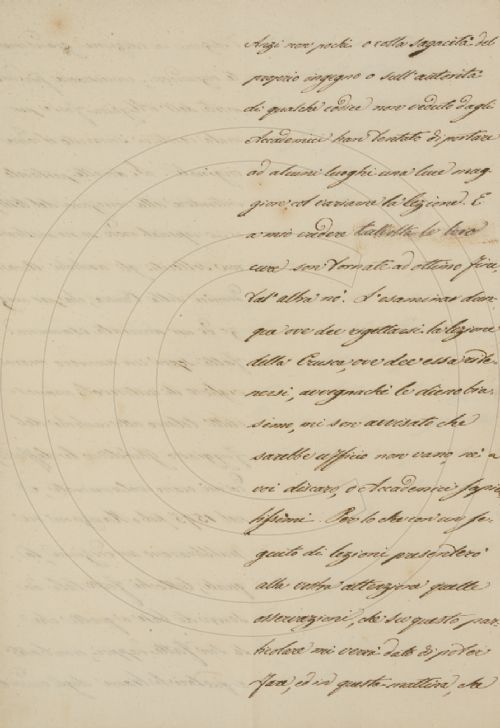 Anzi non pochi o colla sagacità del
proprio ingegno o sull'autorità
di qualche codice non veduto dagli
Accademici han tentato di portare
ad alcuni luoghi una luce mag-
giore col variarne la lezione. E
a mio credere talvolta le loro
cure son tornate ad ottimo fine
tal'altra nò. L'esaminar dun-
que ove dee rigettarsi la lezione
della Crusca, ove dee essa rite-
nersi, avegnachè le dieno bia-
simo, mi son avvisato che
sarebbe ufficio non vano, nè a
voi discaro, o Accademici sapien-
tissimi. Per lo che con un se-
guito di lezioni presenterò
alla vostra attenzione quelle
osservazioni, che su questo par-
ticolare mi verrà dato di poter
fare, ed in questa mattina, che